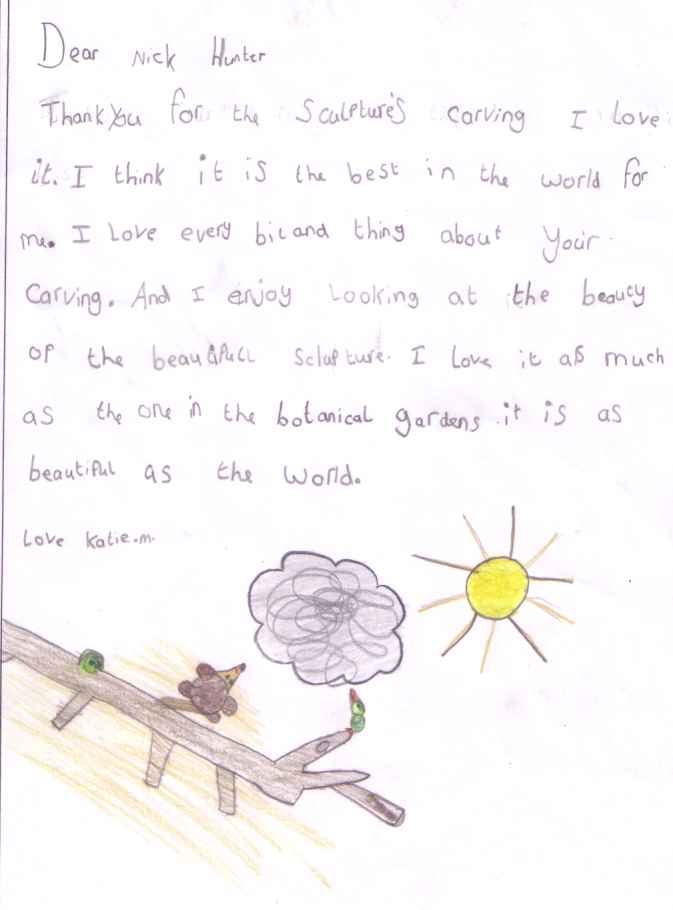 Dear Nick Hunter
Thank you for the Sculpture's carving I love
it. I think it is the best in the world for
me. I Love every bit and thing about your
Carving. And I enjoy Looking at the beauty
of the beautifull sclupture. I Love it as much
as the one in the botanical gardens it is as
beautiful as the world.
Love Katie.m.